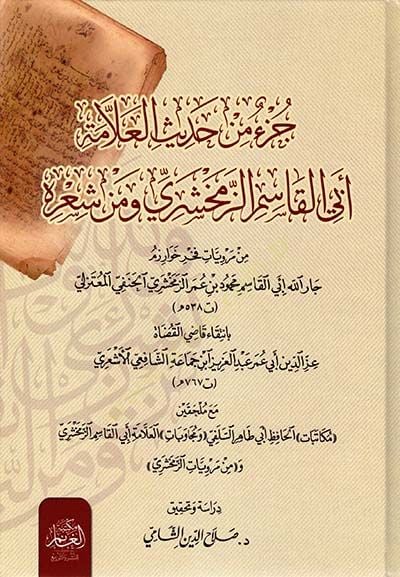 جُزْءٌ مِنْ حَدِيثِ العَلَّامَةِ
أَبِي القَاسِمِ الزَّمَخْشَرِيِّ وَمِنْ شِعْرِهِ
مِنْ مَرْوِيَّاتِ فَخْرِ خَوَارِزْمَ
جَارِ اللهِ أَبِي القَاسِمِ مَحْمُودِ بْنِ عُمَرَ الزَّمَخْشَرِيِّ الحَنَفِيِّ المُعْتَزِلِيِّ
(ت ٥٣٨هـ)
بِانْتِقَاءِ قَاضِي القُضَاةِ
عِزِّ الدِّينِ أَبِي عُمَرَ عَبْدِ العَزِيزِ ابْنِ جَمَاعَةَ الشَّافِعِيِّ الأَشْعَرِيِّ
(ت ٧٦٧هـ)
مَعَ مُلْحَقَيْنِ
(مُكَاتَبَات) الحَافِظِ أَبِي طَاهِرٍ السِّلَفِيِّ (وَمُجَاوَبَات) العَلَّامَةِ أَبِي القَاسِمِ الزَّمَخْشَرِيِّ
وَ(مِنْ مَرْوِيَّاتِ الزَّمَخْشَرِيِّ)
دِرَاسَة وَتَحْقِيق
د. صَلَاحُ الدِّينِ الشَّامِيّ
مكتبة
الغانم
للنشر والتوزيع